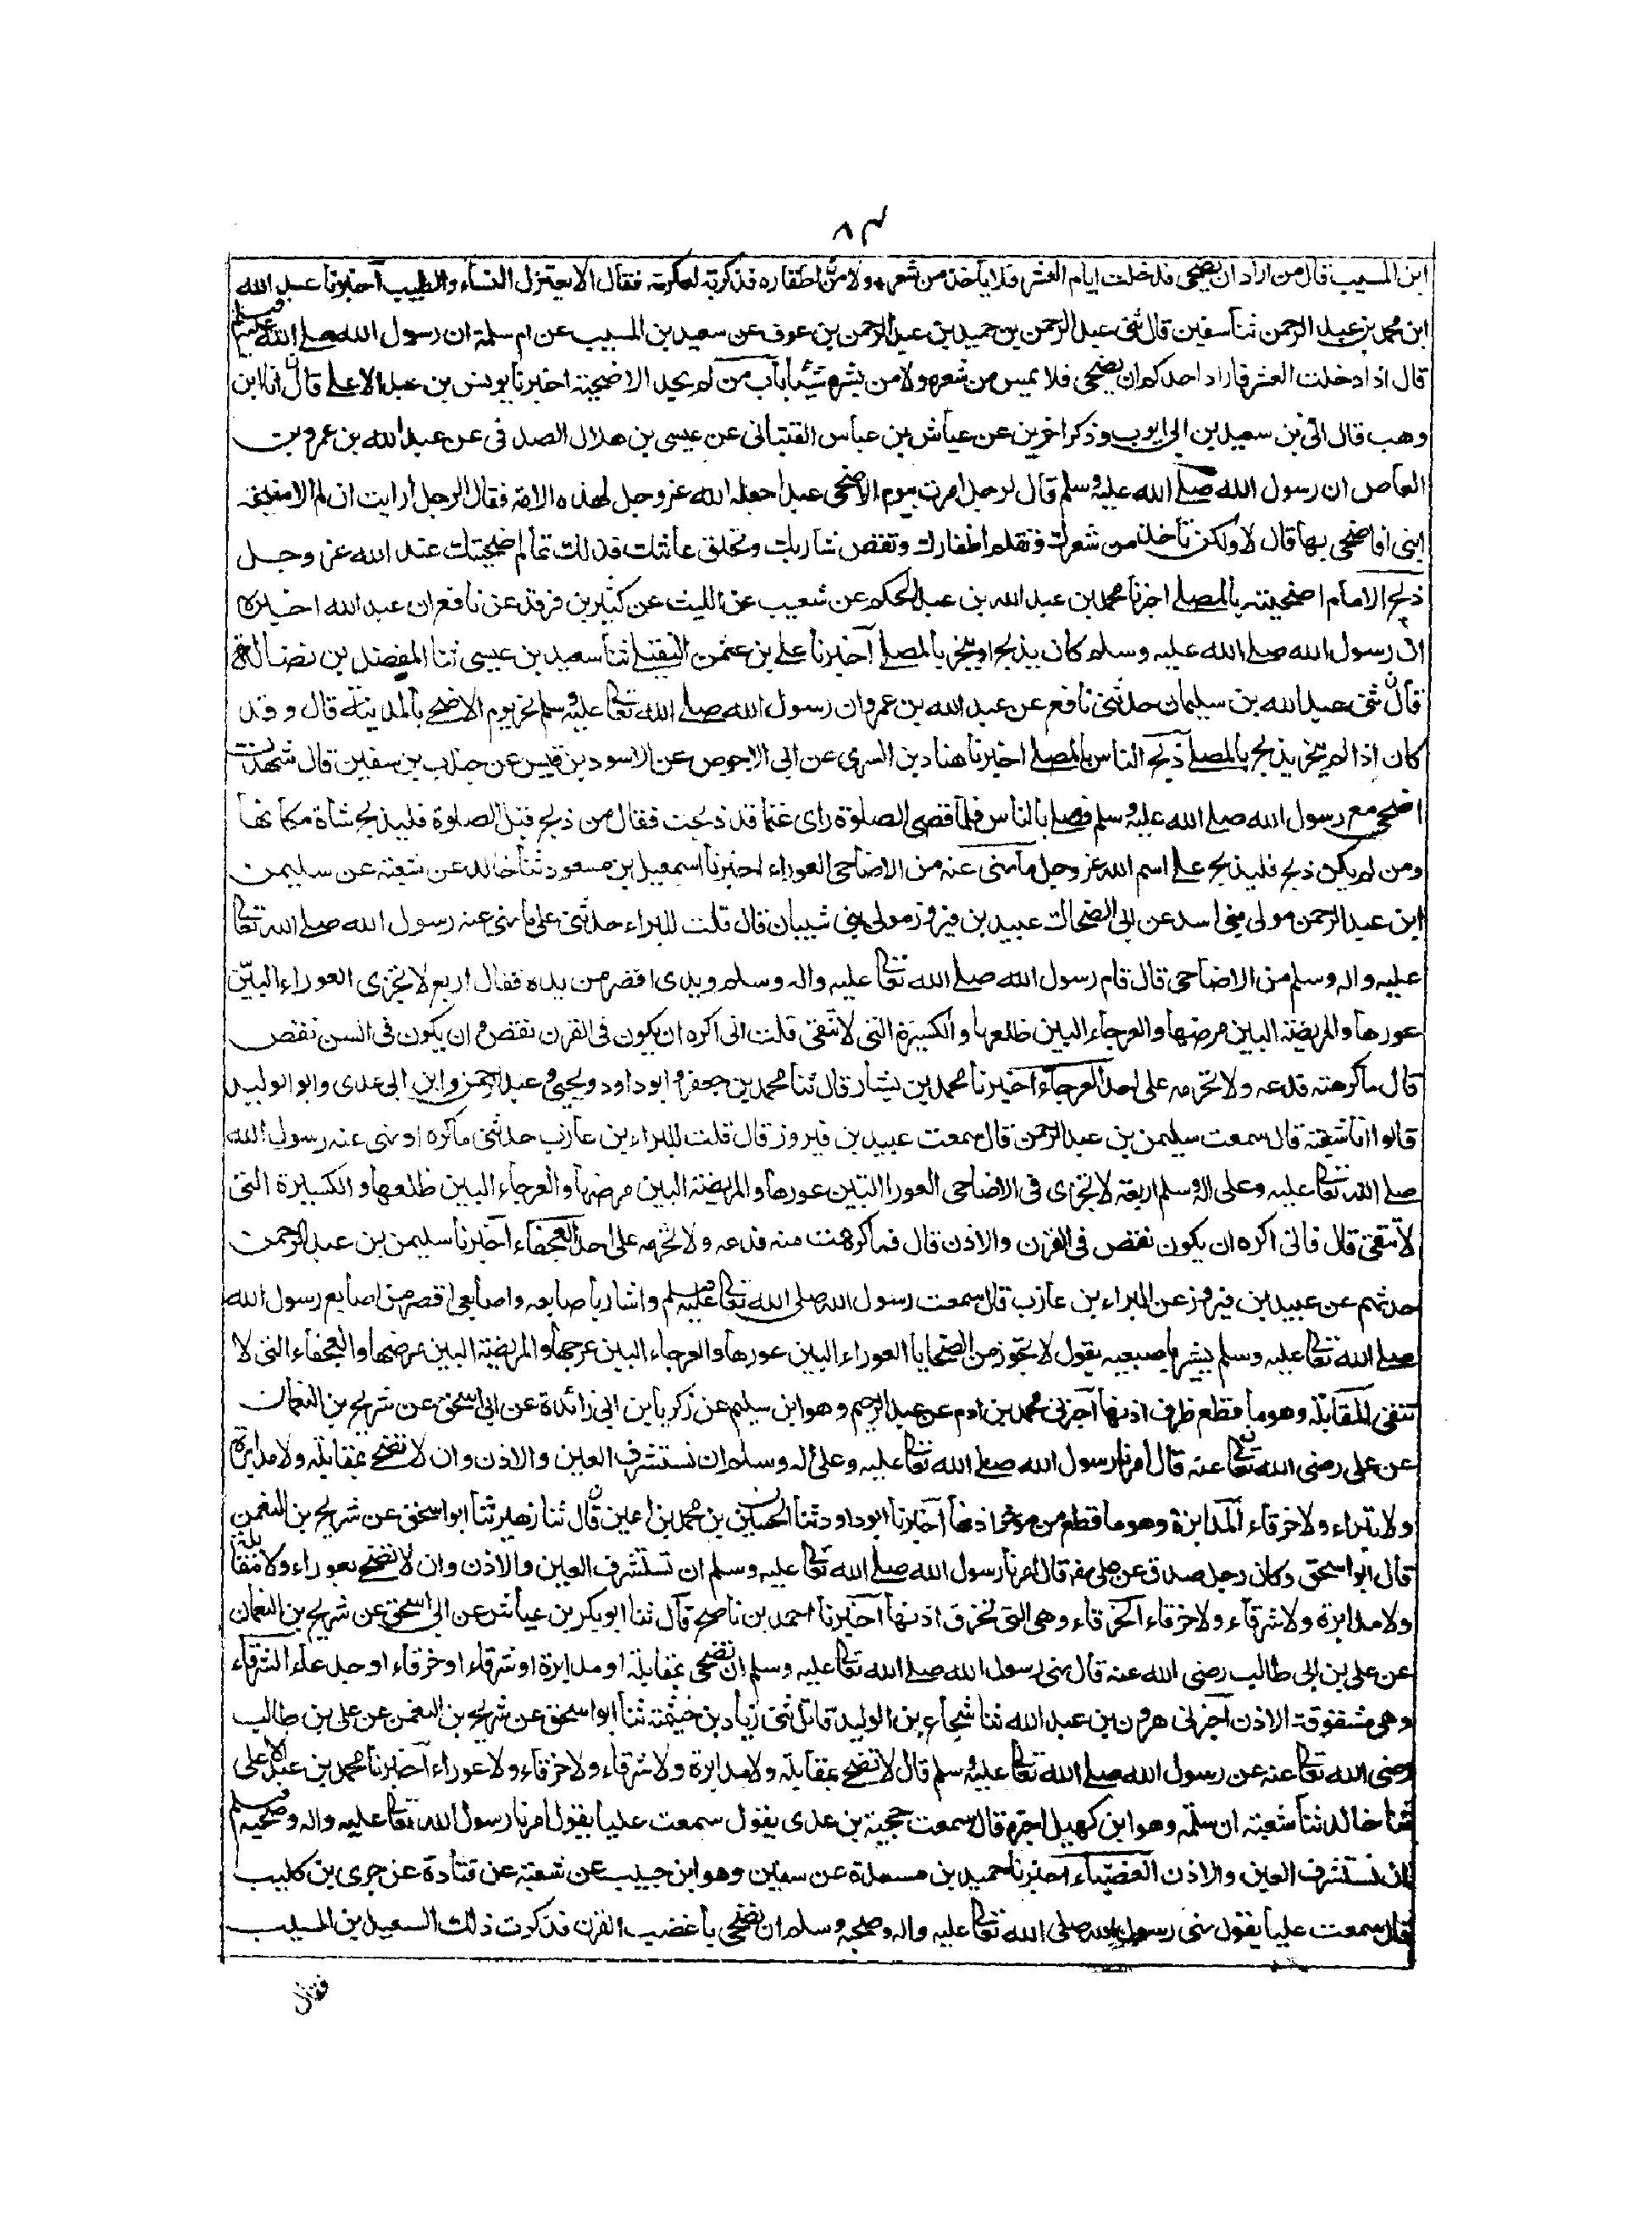 ٨٣
ابن المسيب قال من اراد ان يضحى فدخلت ايام العشر فلا يأخذ من شعره ولا من اظفاره فذكرته لعكرمة فقال الا يعتزل النساء والطيب اخبرنا عبد الله
ابن محمد بن عبد الرحمن ثنا سفين قال ثنى عبد الرحمن بن حميد بن عبد الرحمن بن عوف عن سعيد بن المسيب عن ام سلمة ان رسول الله صلى الله عليه وسلم
قال اذا دخلت العشر فاراد احدكم ان يضحى فلا يمس من شعره ولا من بشره شيئا باب من لم يجد الاضحية اخبرنا يونس بن عبد الاعلى قال انا ابن
وهب قال انى بن سعيد بن ابى ايوب وذكر اخرين عن عياش بن عباس القتبانى عن عيسى بن هلال الصدفى عن عبد الله بن عمرو بن
العاص ان رسول الله صلى الله عليه وسلم قال لرجل امرت بيوم الاضحى عيدا جعله الله عز وجل لهذه الامة فقال الرجل ارايت ان لم الا منيحة
ابنى افاضحى بها قال لا ولكن تأخذ من شعرك وتقلم اظفارك وتقص شاربك وتحلق عانتك فذلك تمام اضحيتك عند الله عز وجل
ذبح الامام اضحيته بالمصلى اخبرنا محمد بن عبد الله بن عبد الحكم عن شعيب عن الليث عن كثير بن فرقد عن نافع ان عبد الله اخبره
ان رسول الله صلى الله عليه وسلم كان يذبح او ينحر بالمصلى اخبرنا على بن عثمن النفيلى ثنا سعيد بن عيسى ثنا المفضل بن فضالة
قال ثنى عبد الله بن سليمان حدثنى نافع عن عبد الله بن عمر وان رسول الله صلى الله تعالى عليه وسلم نحر يوم الاضحى بالمدينة قال وقد
كان اذا لم ينحر يذبح بالمصلى ذبح الناس بالمصلى اخبرنا هناد بن السرى عن ابى الاحوص عن الاسود بن قيس عن جندب بن سفين قال شهدت
اضحى مع رسول الله صلى الله عليه وسلم فصلى بالناس فلما قضى الصلوة راى غنما قد ذبحت فقال من ذبح قبل الصلوة فليذبح شاة مكانها
ومن لم يكن ذبح فليذبح على اسم الله عز وجل ما نهى عنه من الاضاحى العوراء اخبرنا اسمعيل بن مسعود ثنا خالد عن شعبة عن سليمن
ابن عبد الرحمن مولى بنى اسد عن ابى الضحاك عبيد بن فيروز مولى بنى شيبان قال قلت للبراء حدثنى على ما نهى عنه رسول الله صلى الله تعالى
عليه واله وسلم من الاضاحى قال قام رسول الله صلى الله تعالى عليه واله وسلم ويدى اقصر من يده فقال اربع لا تجزى العوراء البيّن
عورها والمريضة البين مرضها والعرجاء البين ظلعها والكسيرة التى لا تنقى قلت انى اكره ان يكون فى القرن نقص وان يكون فى السن نقص
قال ما كرهته فدعه ولا تحرمه على احد العرجاء اخبرنا محمد بن بشار قال ثنا محمد بن جعفر وابو داود ويحيى وعبد الرحمن وابن ابى عدى وابو الوليد
قالوا انا شعبة قال سمعت سليمن بن عبد الرحمن قال سمعت عبيد بن فيروز قال قلت للبراء بن عازب حدثنى ما كره او نهى عنه رسول الله
صلى الله تعالى عليه وعلى اله وسلم اربعة لا تجزى فى الاضاحى العورا البيّن عورها والمريضة البين مرضها والعرجاء البين ظلعها والكسيرة التى
لا تنقى قال فانى اكره ان يكون نقص فى القرن والاذن قال فما كرهت منه فدعه ولا تحرمه على احد العجفاء اخبرنا سليمن بن عبد الرحمن
حدثهم عن عبيد بن فيروز عن البراء بن عازب قال سمعت رسول الله صلى الله تعالى عليه وسلم واشار باصابعه واصابعى اقصر من اصابع رسول الله
صلى الله تعالى عليه وسلم يشير باصبعيه يقول لا يجوز من الضحايا العوراء البين عورها والعرجاء البين عرجها والمريضة البين مرضها والعجفاء التى لا
تنقى المقابلة وهو ما قطع طرف اذنها اخبرنى محمد بن ادم عن عبد الرحيم وهو ابن سليم عن زكريا بن ابى زائدة عن ابى اسحق عن شريح بن النعمان
عن على رضى الله تعالى عنه قال امرنا رسول الله صلى الله تعالى عليه وعلى اله وسلم ان نستشرف العين والاذن وان لا نضحى بمقابلة ولا مدابرة
ولا بتراء ولا خرقاء المدابرة وهو ما قطع من مؤخر اذنها اخبرنا ابو داود ثنا الحسن بن محمد بن اعين قال ثنا زهير ثنا ابو اسحق عن شريح بن النعمن
قال ابو اسحق وكان رجل صدق عن على قال امرنا رسول الله صلى الله تعالى عليه وسلم ان نستشرف العين والاذن وان لا نضحى بعوراء ولا مقابلة
ولا مدابرة ولا شرقاء ولا خرقاء الخرقاء وهى التى تخرق اذنها اخبرنا احمد بن ناصح قال ثنا ابو بكر بن عياش عن ابى اسحق عن شريح بن النعمان
عن على بن ابى طالب رضى الله عنه قال نهى رسول الله صلى الله تعالى عليه وسلم ان نضحى بمقابلة او مدابرة او شرقاء او خرقاء او جدعاء الشرقاء
وهى مشقوقة الاذن اخبرنى هرون بن عبد الله ثنا شجاع بن الوليد قال ثنى زياد بن خيثمة ثنا ابو اسحق عن شريح بن النعمن عن على بن طالب
رضى الله تعالى عنه عن رسول الله صلى الله تعالى عليه وسلم قال لا تضحى بمقابلة ولا مدابرة ولا شرقاء ولا خرقاء ولا عوراء اخبرنا محمد بن عبد الاعلى
ثنا خالد ثنا شعبة ان سلمة وهو ابن كهيل اخبره قال سمعت حجية بن عدى يقول سمعت عليا يقول امرنا رسول الله تعالى عليه واله وصحبه وسلم
ان نستشرف العين والاذن العضباء اخبرنا حميد بن مسعدة عن سفين وهو ابن حبيب عن شعبة عن قتادة عن جرى بن كليب
قال سمعت عليا يقول نهى رسول الله صلى الله تعالى عليه واله وصحبه وسلم ان نضحى باعضب القرن فذكرت ذلك السعيد بن المسيب
فقال